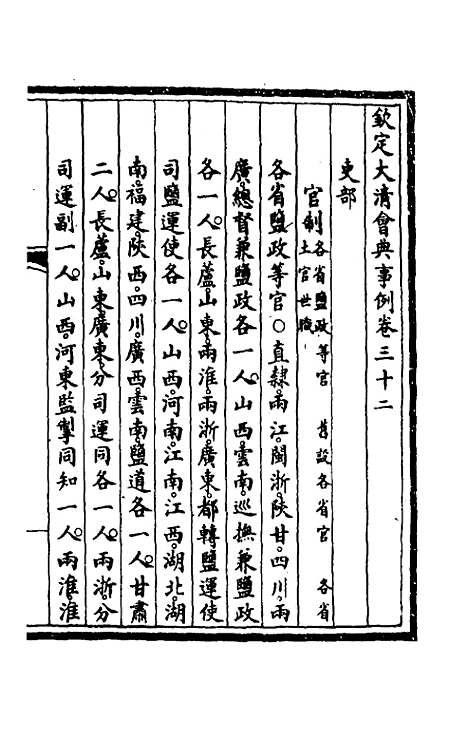 欽定大清會典事例卷三十二
吏部
官制各省鹽政等官 舊設各省官 各省
土官世職
各省鹽政等官○直隸兩江閩浙陝甘四川兩
廣總督兼鹽政各一人山西雲南巡撫兼鹽政
各一人長蘆山東兩淮兩浙廣東都轉鹽運使
司鹽運使各一人山西河南江南江西湖北湖
南福建陝西四川廣西雲南鹽道各一人甘肅
二人長蘆山東廣東分司運同各一人兩浙分
司運副一人山西河東監掣同知一人兩淮淮